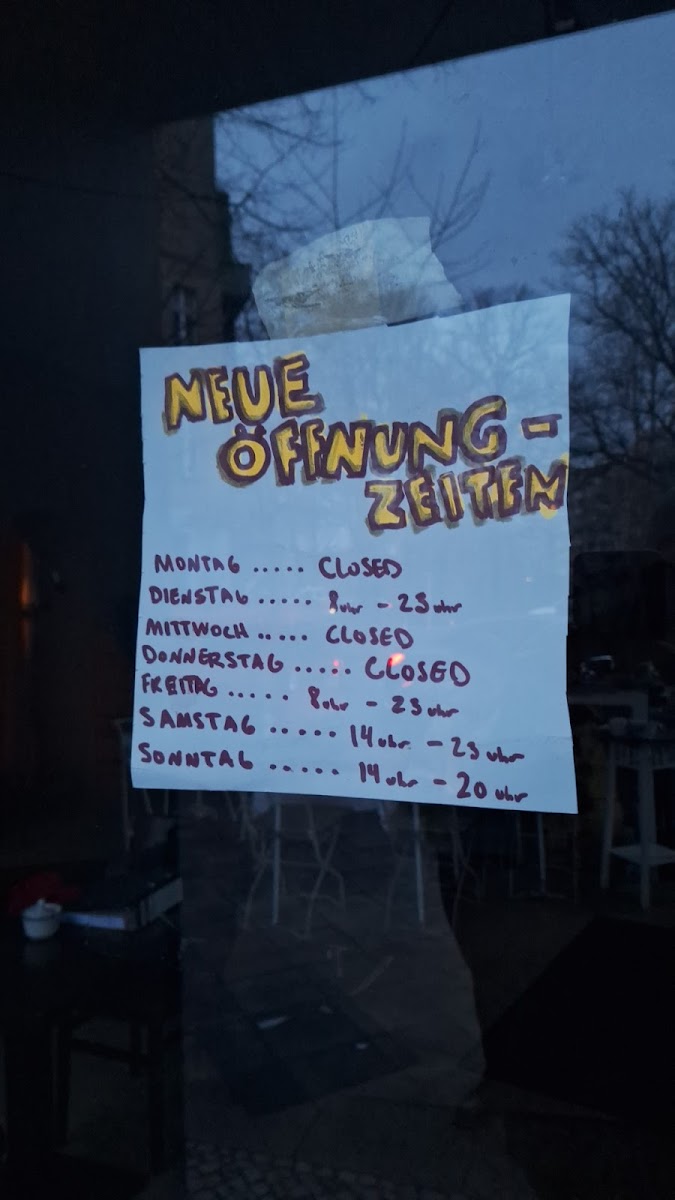 NEUE
ÖFFNUNG-
ZEITEN
MONTAG ..... CLOSED
DIENSTAG ..... 8 uhr - 23 uhr
MITTWOCH ..... CLOSED
DONNERSTAG ..... CLOSED
FREITAG ..... 8 uhr - 23 uhr
SAMSTAG ...... 14 uhr - 23 uhr
SONNTAG ..... 14 uhr - 20 uhr